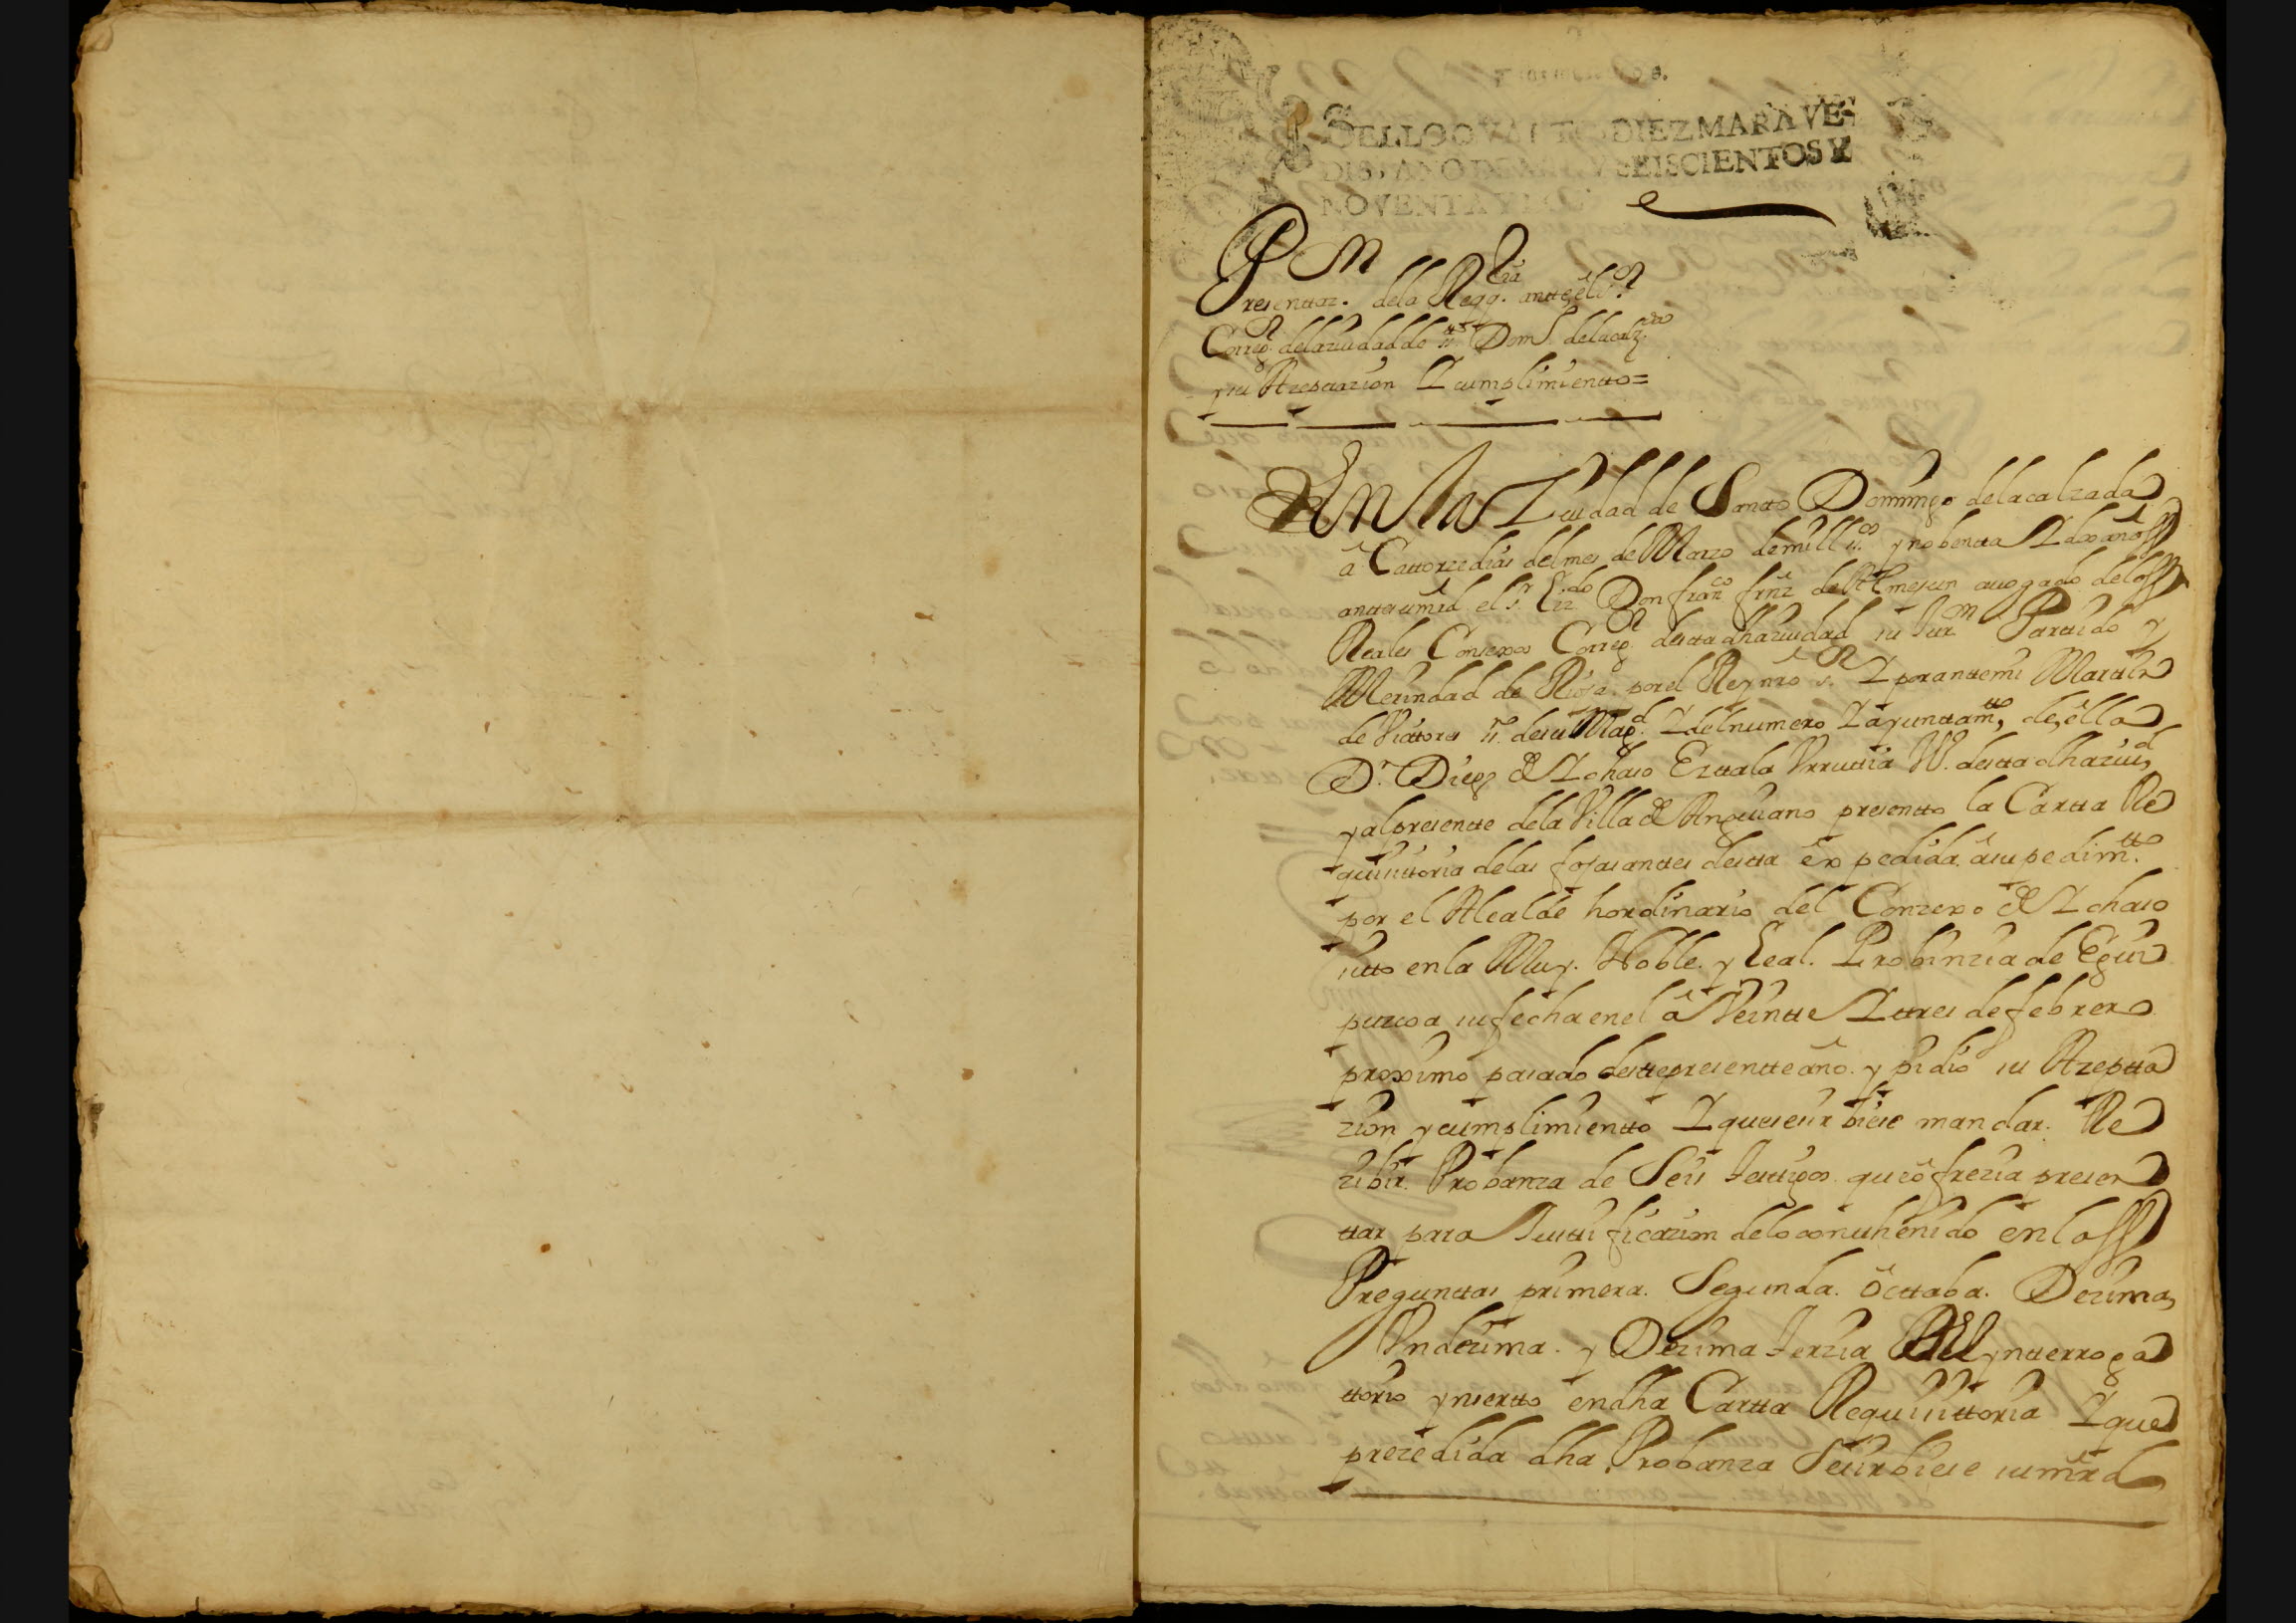 SELLO QVARTO DIEZ MARAVE-
DIS, AÑO DE MIL Y SEISCIENTOS Y
NOVENTA Y
Presenttaz.on dela Reqq.ria antte, el s.r
Correg.r delaziudad de s.tto Dom.o delacalz.da
y su Azeptazion I cumplimientto=
En la Ziudad de Santto Domingo delacalzada
â Cattorze dias del mes de Marzo de mill s.os y nobentta I dos años
antte sumrd el s.r Liz.do Don fran.co frnz de
 auogado delos
Reales Consexos Correg.r destta dha ziudad su Jur.on Parttido y
Merindad de Rioja. por el Rey nro s.r I por anttemi Mattia
de Viattores ss.no desu Mag.d I del numero I ayunttam.tto, de, ella
D.n Diego de Ichaso Eztala Vrruttia V.o destta dha ziu.d
y al presentte dela Villa de Anguiano presentto la Cartta Re
quisittoria delas fojas anttes destta expedida â su pedim.tto
por el Alcalde hordinario del Conzexo de Ichaso
sitto en la Muy. Noble. y Leal. Probinzia de Eguip
puzcoa su fecha en el â Veintte I ttres de febrero
proximo pasado desttepresentte año. y pidio su Azeptta
zion y cumplimientto I que se sirbiese mandar. Re
zibir. Probanza de Seis Testtigos que ofrezia presen
ttar para Justtificazion delo conthenido en los
Pregunttas primera. Segunda. Octtaba. Dezima,
Vndezima. y Dezima Terzia Del ynterroga
ttorio ynsertto en dha Cartta Requisittoria I que
prezedida dha Probanza Se sirbiese sumrd